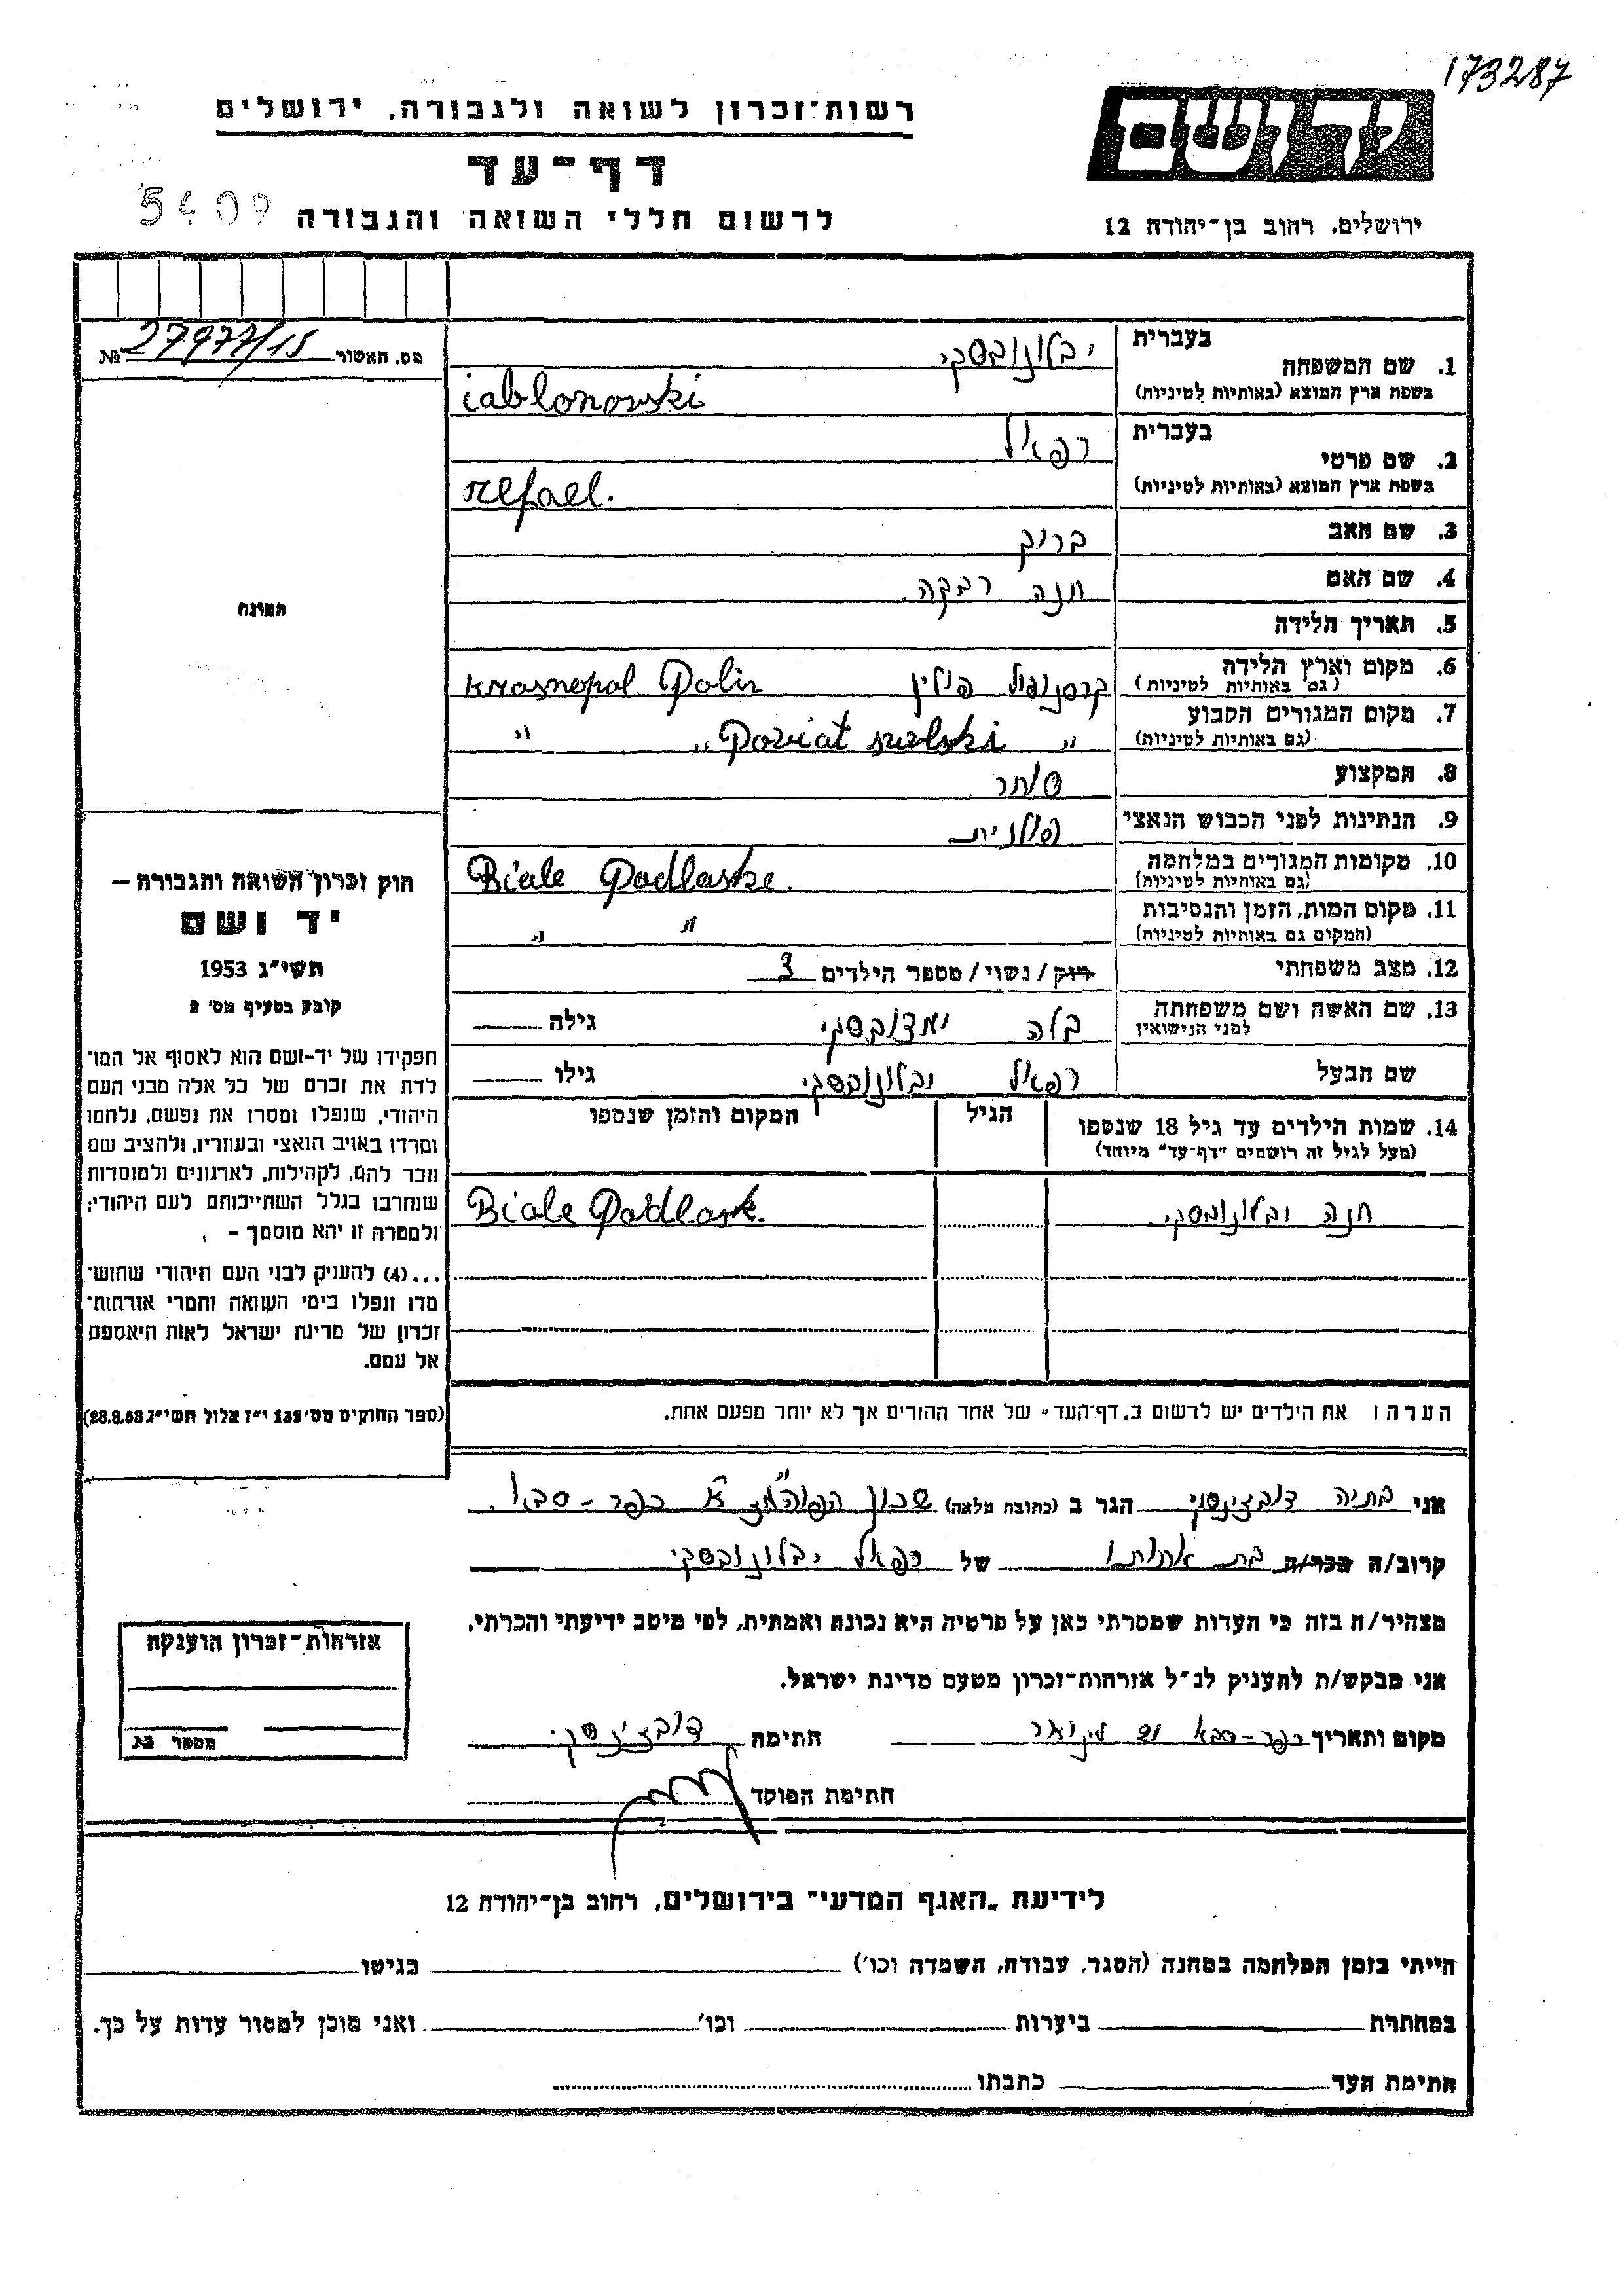 173287
רשות־זכרון לשואה ולגבורה, ירושלים
יד ושם
דף־עד
5409
לרשום חללי השואה והגבורה
ירושלים, רחוב בן־יהודה 12
מס. תאשור 27977/15 №
בעברית יבלונובסקי
1. שם המשפחה
בשפת ארץ המוצא (באותיות לטיניות) iablonowski
בעברית רפאל
2. שם פרטי
בשפת ארץ המוצא (באותיות לטיניות) refael.
3. שם האב ברוך
4. שם האם חנה רבקה.
5. תאריך הלידה
6. מקום וארץ הלידה קרסנופול פולין Krasnopol Polin
(גם באותיות לטיניות)
7. מקום המגורים הקבוע " Poviat suvlski " "
(גם באותיות לטיניות)
8. המקצוע סוחר
9. הנתינות לפני הכבוש הנאצי פולנית
10. מקומות המגורים במלחמה Biale Podlaske.
(גם באותיות לטיניות)
11. מקום המות, הזמן והנסיבות " "
(המקום גם באותיות לטיניות)
12. מצב משפחתי רווק/נשוי/מספר הילדים 3
13. שם האשה ושם משפחתה בלה גילה
לפני הנישואין
שם הבעל רפאל יבלונובסקי גילו
14. שמות הילדים עד גיל 18 שנספו הגיל המקום והזמן שנספו
(מעל לגיל זה רושמים "דף־עד" מיוחד)
חנה יבלונובסקי. Biale Podlask.
הערה: את הילדים יש לרשום ב„דף־העד" של אחד ההורים אך לא יותר מפעם אחת.
תמונה
חוק זכרון השואה והגבורה –
יד ושם
תשי״ג 1953
קובע בסעיף מס׳ 2
תפקידו של יד־ושם הוא לאסוף אל המו־
לדת את זכרם של כל אלה מבני העם
היהודי, שנפלו ומסרו את נפשם, נלחמו
ומרדו באויב הנאצי ובעוזריו, ולהציב שם
וזכר להם, לקהילות, לארגונים ולמוסדות
שנחרבו בגלל השתייכותם לעם היהודי;
ולמטרה זו יהא מוסמך –
...(4) להעניק לבני העם היהודי שהוש־
מדו ונפלו בימי השואה והמרי אזרחות־
זכרון של מדינת ישראל לאות היאספם
אל עמם.
(ספר החוקים מס׳ 132 י״ז אלול תשי״ג 28.8.53)
אני בתיה הגר ב (כתובת מלאה) שכון כפר־סבא.
קרוב/ה מכר/ה בת אחותו של רפאל יבלונובסקי
מצהיר/ה בזה כי העדות שמסרתי כאן על פרטיה היא נכונה ואמתית, לפי מיטב ידיעתי והכרתי.
אני מבקש/ת להעניק לנ״ל אזרחות־זכרון מטעם מדינת ישראל.
מקום ותאריך כפר־סבא חתימה
חתימת הפוקד
אזרחות־זכרון הוענקה
מספר
לידיעת „האגף המדעי" בירושלים, רחוב בן־יהודה 12
הייתי בזמן המלחמה במחנה (הסגר, עבודה, השמדה וכו׳) בגיטו
במחתרת ביערות וכו׳ ואני מוכן למסור עדות על כך.
חתימת העד כתבתו